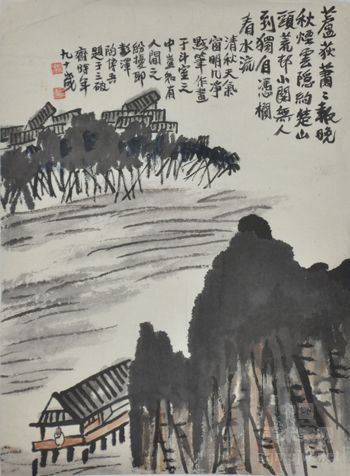 蘆荻蕭々報晚
秋煙雲隱約楚山
頭荒邨小閣無人
到獨自憑欄
看水流
清秋天氣
窗明几淨
點筆作畫
于斗室之
中豈知有
人間之
紛擾耶
彭澤
陶博吾
題于三破
齋時年
九十歲